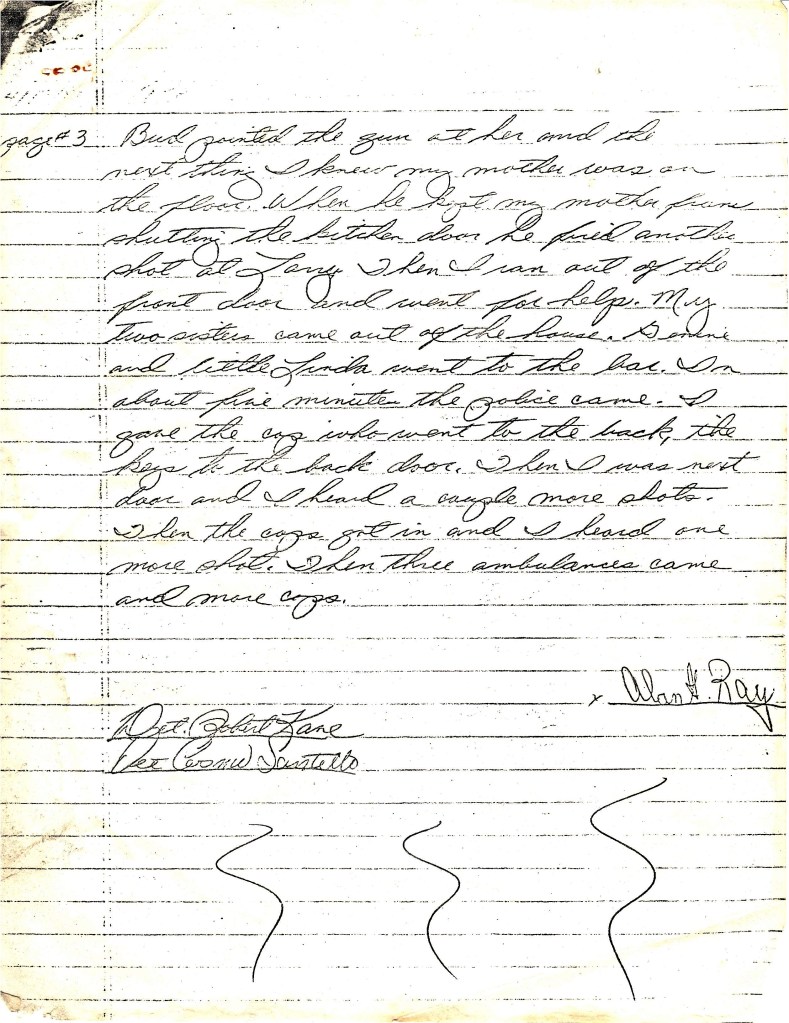 page #3 Bud pointed the gun at her and the
next thing I knew my mother was on
the floor. When he kept my mother from
shutting the kitchen door he fired another
shot at Larry. Then I ran out of the
front door and went for help. My
two sisters came out of the house.
and little Linda went to the bar. In
about five minutes the police came. I
gave the cop who went to the back, the
keys to the back door. Then I was next
door and I heard a couple more shots.
Then the cops got in and I heard one
more shot. Then three ambulances came
and more cops.
x Alan G. Ray
Det. Robert Kane
Det Santello